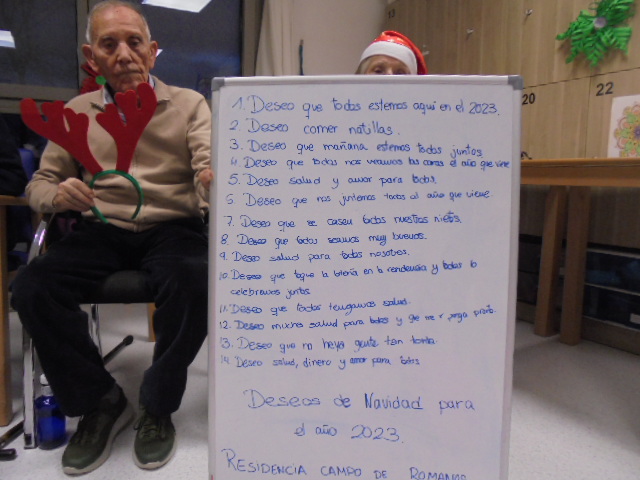 1. Deseo que todos estemos aquí en el 2023.
2. Deseo comer natillas.
3. Deseo que mañana estemos todos juntos
4. Deseo que todos nos veamos las caras el año que viene
5. Deseo salud y amor para todos.
6. Deseo que nos juntemos todos el año que viene
7. Deseo que se casen todos nuestros nietos.
8. Deseo que todos seamos muy buenos.
9. Deseo salud para todos nosotros.
10. Deseo que toque la lotería en la residencia y todos lo
celebremos juntos
11. Deseo que todos tengamos salud.
12. Deseo mucha salud para todos y que me ponga pronto.
13. Deseo que no haya gente tan tonta.
14. Deseo salud, dinero y amor para todos
Deseos de Navidad para
el año 2023.
RESIDENCIA CAMPO DE ROMANOS
20
22